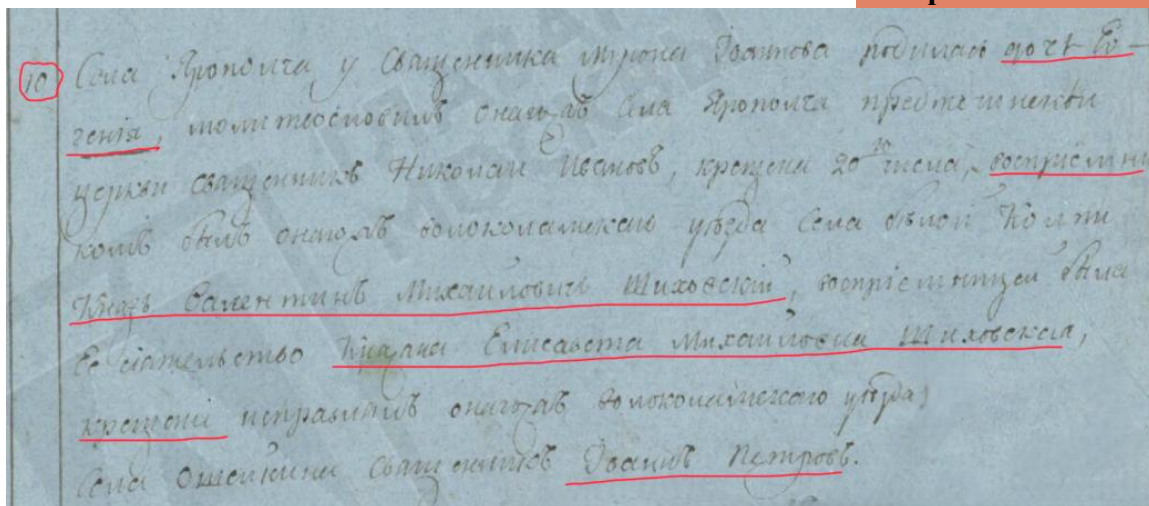 10 Села Ярополча у Священника Мирона Іоаннова родилась дочь Ев-
генія, молитвословилъ онагожъ Села Ярополча предтечинской
церкви священникъ Николаи Ивановъ, крещена 20го числа, воспріемни
комъ былъ онагожъ волоколамскаго уѣзда Села бѣлой Колпи
Князь Валентинъ Михаиловичь Шиховскій, воспріемницей была
Ее сіятельство Княжна Елисавета Михаиловна Шиховская,
крещеніе исправлялъ онагожъ волоколамскаго уѣзда
Села Ошейкина Священникъ Іоаннъ Петровъ.